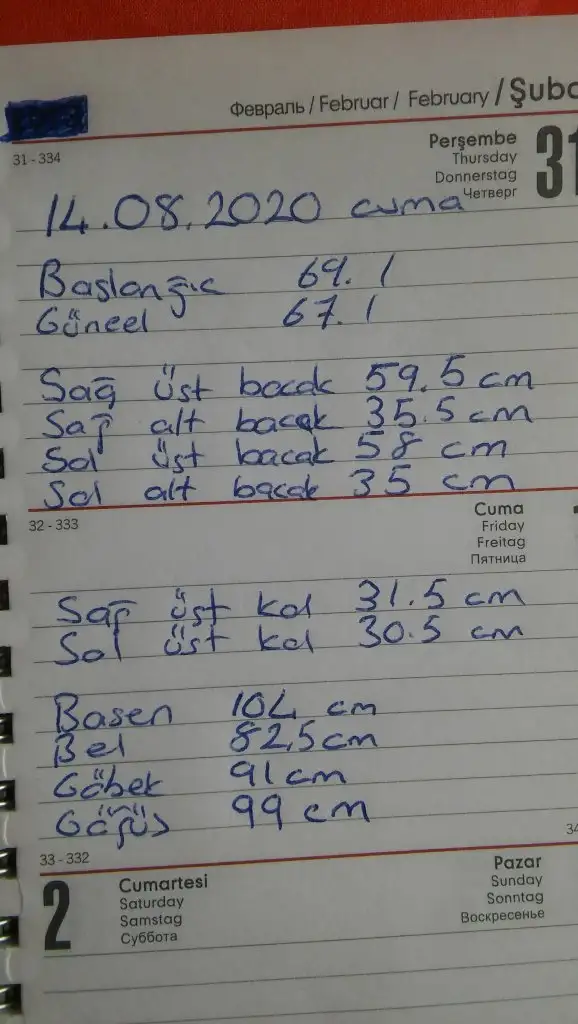 Февраль / Februar / February / Şuba
31 - 334
Perşembe
Thursday
Donnerstag
Четверг
31
14.08.2020 cuma
Başlangıc 69.1
Güncel 67.1
Sağ üst bacak 59.5 cm
Sağ alt bacak 35.5 cm
Sol üst bacak 58 cm
Sol alt bacak 35 cm
32 - 333
Cuma
Friday
Freitag
Пятница
Sağ üst kol 31.5 cm
Sol üst kol 30.5 cm
Basen 104 cm
Bel 82,5cm
Göbek 91cm
Göğüs 99 cm
33 - 332
34
2
Cumartesi
Saturday
Samstag
Суббота
Pazar
Sunday
Sonntag
Воскресенье